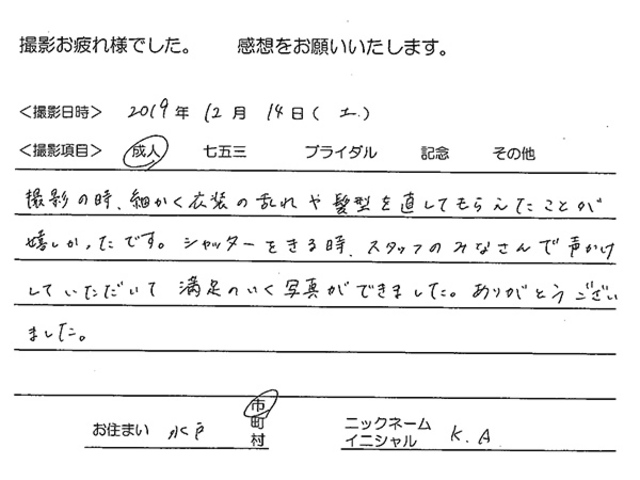 撮影お疲れ様でした。 感想をお願いいたします。
＜撮影日時＞ 2019年 12月 14日( 土 )
＜撮影項目＞ 成人 七五三 ブライダル 記念 その他
撮影の時、細かく衣装の乱れや髪型を直してもらえたことが
嬉しかったです。シャッターをきる時、スタッフのみなさんで声かけ
していただいて 満足のいく写真ができました。ありがとうござい
ました。
お住まい 水戸 市町村 ニックネーム イニシャル K.A